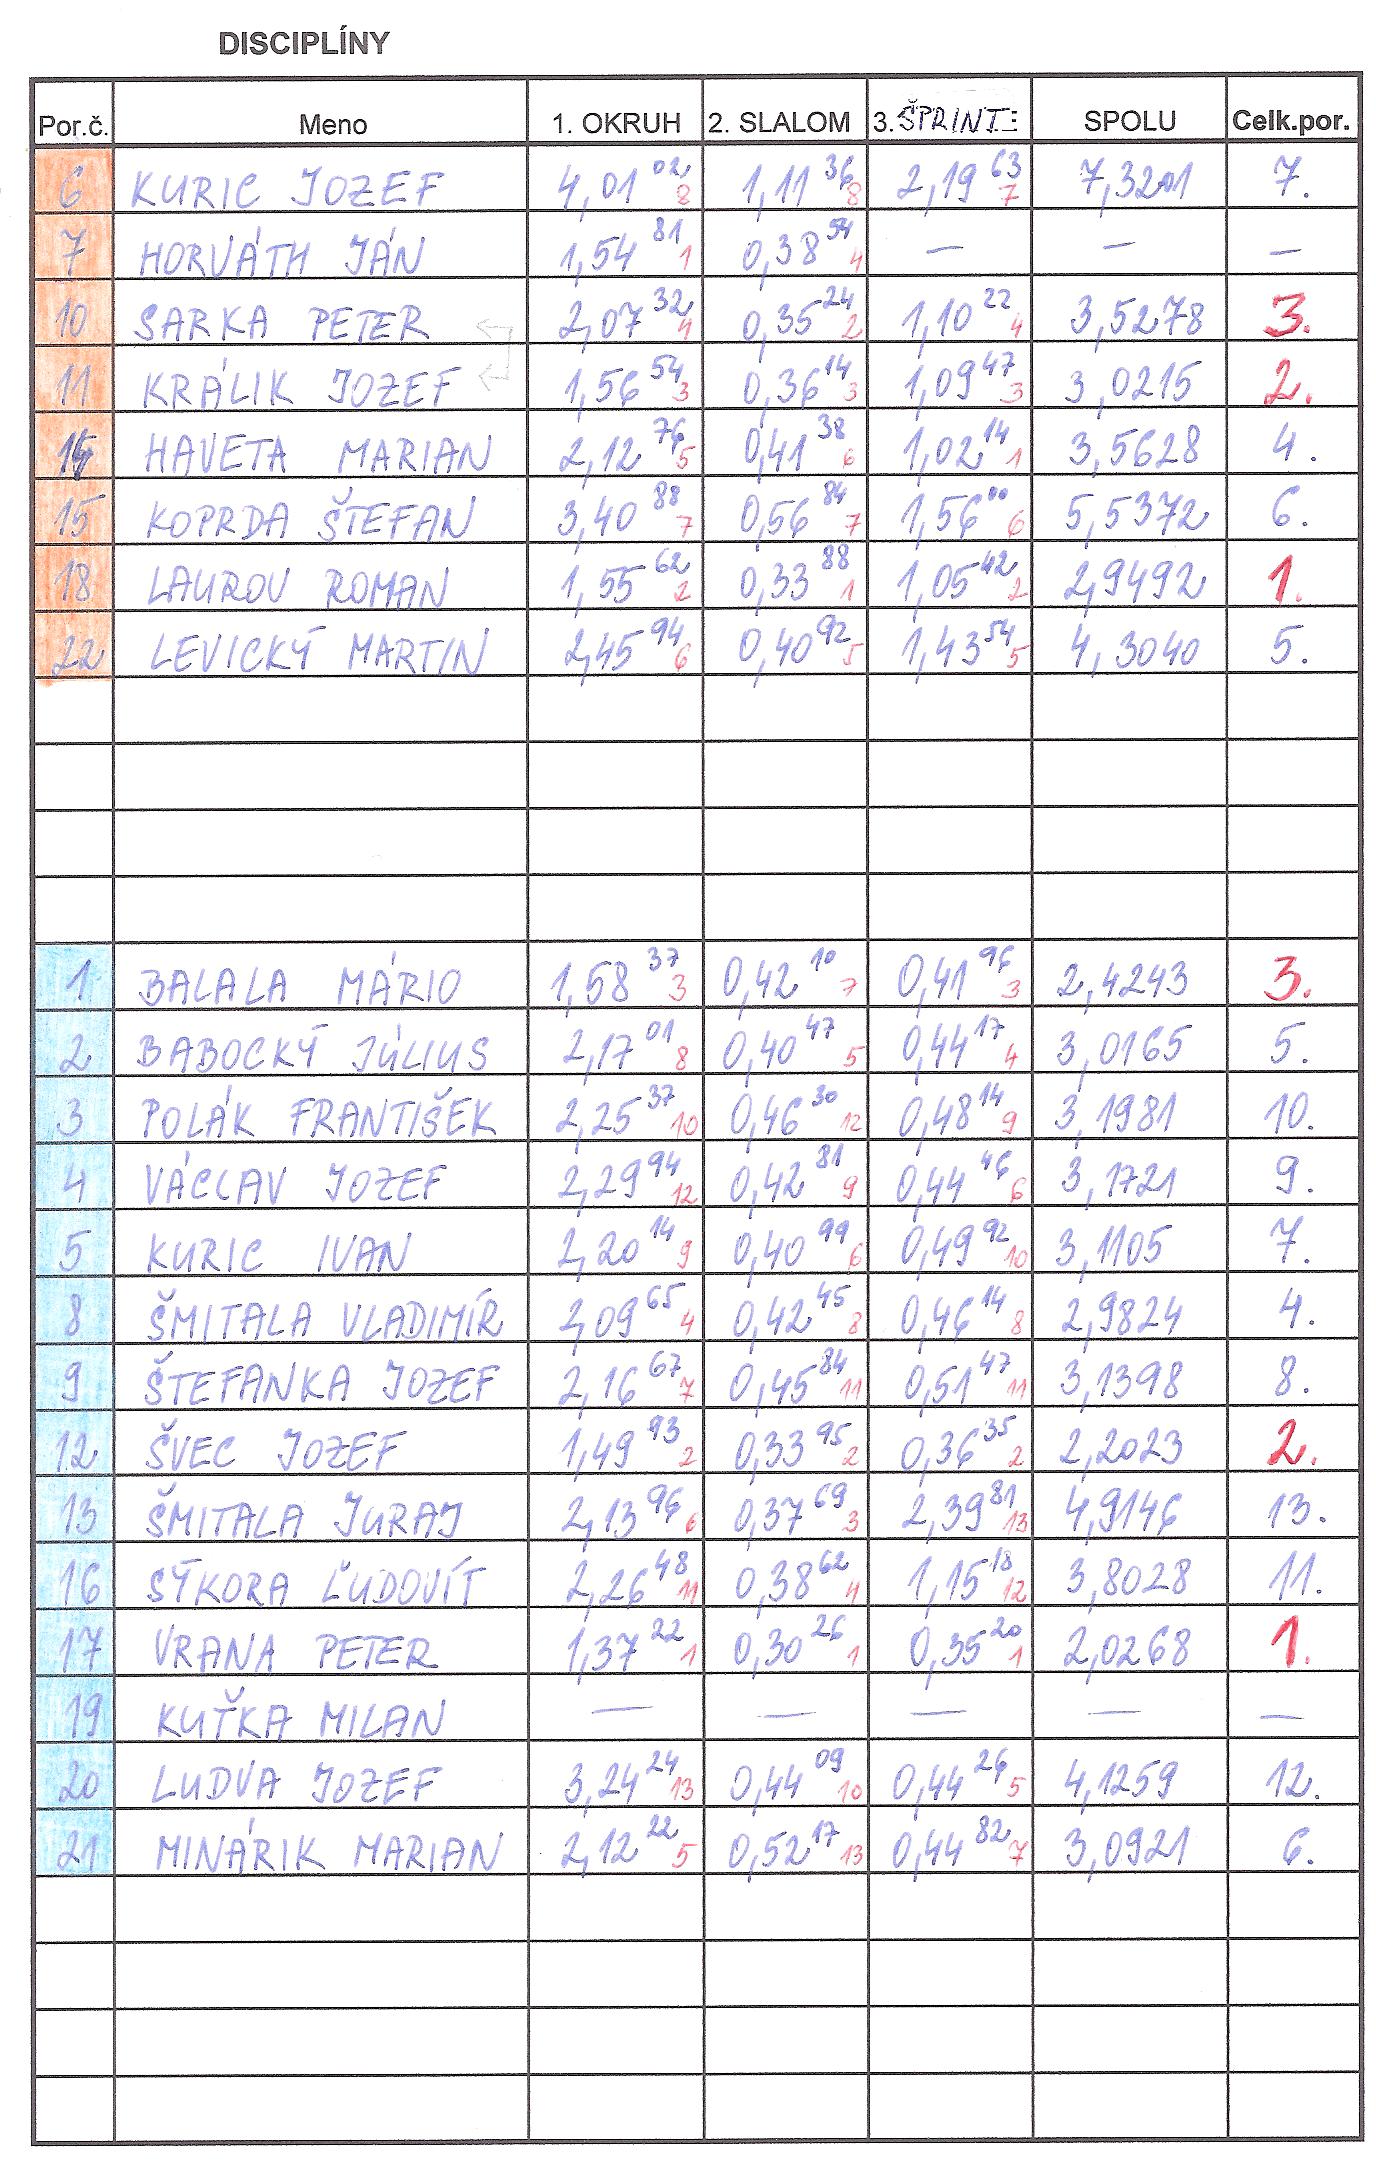 DISCIPLÍNY
Por.č. Meno 1. OKRUH 2. SLALOM 3. ŠPRINT SPOLU Celk.por.
6 KURIC JOZEF 4,01 02 8 1,11 36 8 2,19 63 7 7,3201 7.
7 HORVÁTH JÁN 1,54 81 1 0,38 54 4 — — —
10 SARKA PETER 2,07 32 4 0,35 24 2 1,10 22 4 3,5278 3.
11 KRÁLIK JOZEF 1,56 54 3 0,36 14 3 1,09 47 3 3,0215 2.
14 HAVETA MARIAN 2,12 76 5 0,41 38 6 1,02 14 1 3,5628 4.
15 KOPRDA ŠTEFAN 3,40 88 7 0,56 84 7 1,56 00 6 5,5372 6.
18 LAUROV ROMAN 1,55 62 2 0,33 88 1 1,05 42 2 2,9492 1.
22 LEVICKÝ MARTIN 2,45 94 6 0,40 92 5 1,43 54 5 4,3040 5.
1 BALALA MÁRIO 1,58 37 3 0,42 10 7 0,41 96 3 2,4243 3.
2 BABOCKÝ JÚLIUS 2,17 01 8 0,40 47 5 0,44 17 4 3,0165 5.
3 POLÁK FRANTIŠEK 2,25 37 10 0,46 30 12 0,48 14 9 3,1981 10.
4 VÁCLAV JOZEF 2,29 94 12 0,42 81 9 0,44 46 6 3,1721 9.
5 KURIC IVAN 2,20 14 9 0,40 99 6 0,49 92 10 3,1105 7.
8 ŠMITALA VLADIMÍR 2,09 65 4 0,42 45 8 0,46 14 8 2,9824 4.
9 ŠTEFANKA JOZEF 2,16 67 7 0,45 84 11 0,51 47 11 3,1398 8.
12 ŠVEC JOZEF 1,49 93 2 0,33 95 2 0,36 35 2 2,2023 2.
13 ŠMITALA JURAJ 2,13 96 6 0,37 69 3 2,39 81 13 4,9146 13.
16 SÝKORA ĽUDOVÍT 2,26 48 11 0,38 62 4 1,15 18 12 3,8028 11.
17 VRANA PETER 1,37 22 1 0,30 26 1 0,35 20 1 2,0268 1.
19 KUŤKA MILAN — — — — —
20 LUDVA JOZEF 3,24 24 13 0,44 09 10 0,44 26 5 4,1259 12.
21 MINÁRIK MARIAN 2,12 22 5 0,52 17 13 0,44 82 7 3,0921 6.